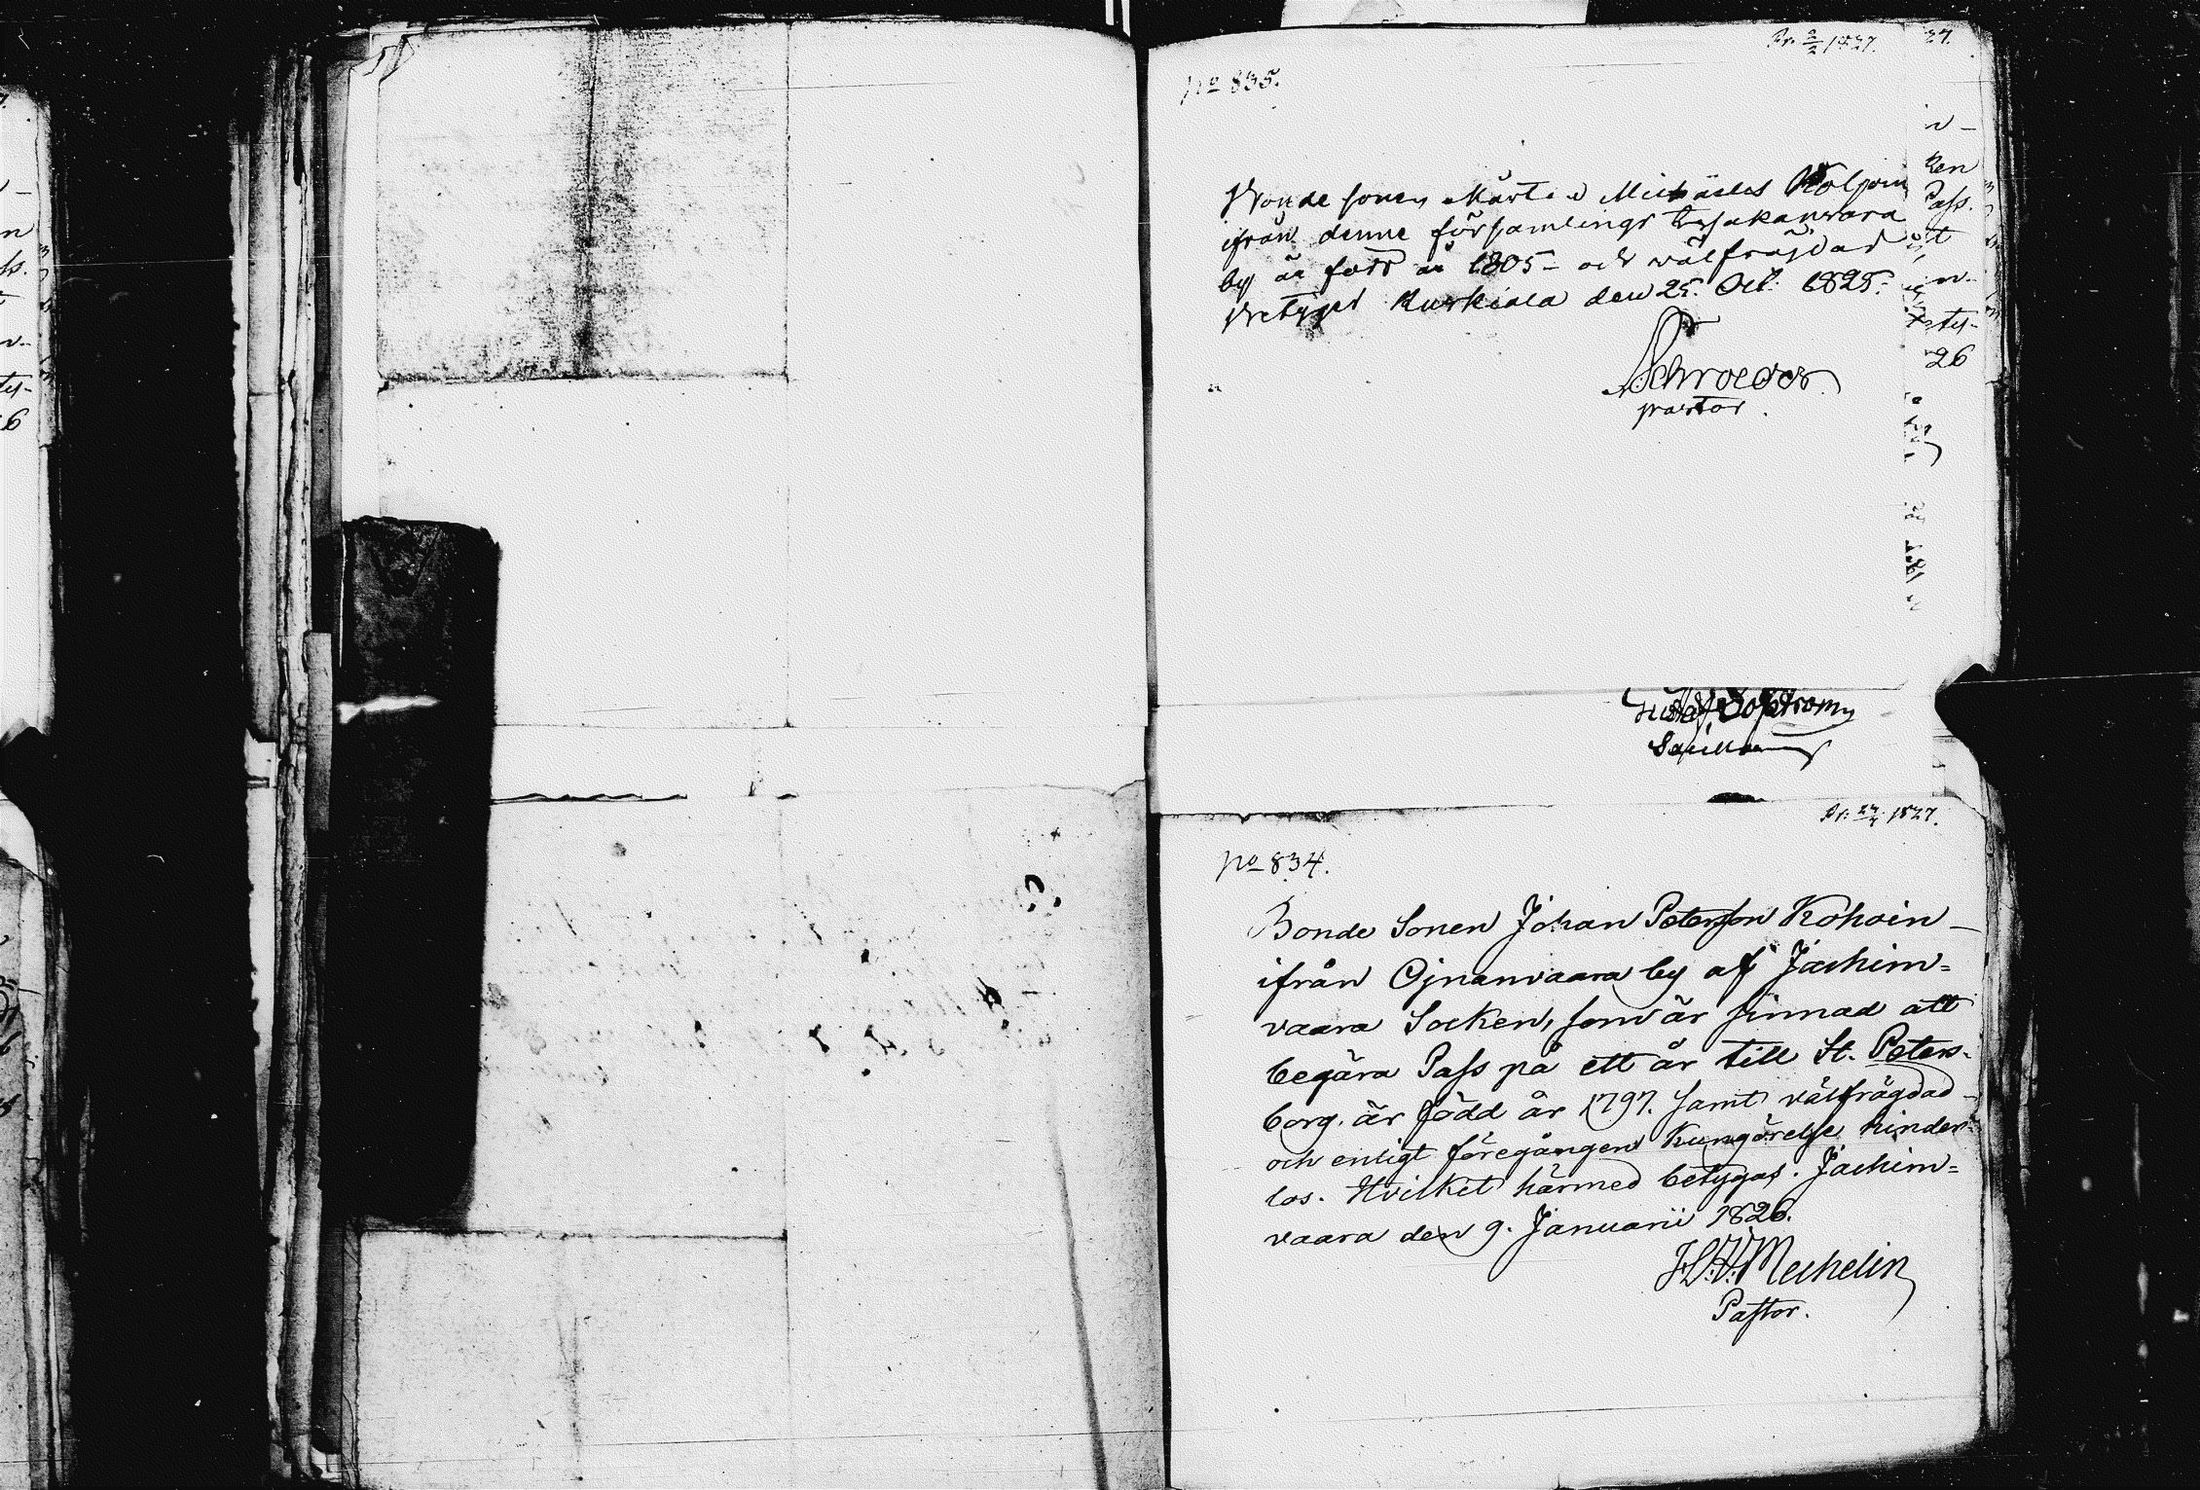 Pr. 2/2 1827.
No 835.
Bonde sonen Mårten Michaels Koljoin
ifrån denne församlings
by är född år 1805 – och välfräjdad
betygas Kurkiala den 25. Oct. 1825.
Schroeder
pastor.
ken
Pass.
26
Pr. 1827.
No 834.
Bonde Sonen Johan Petersson Kohoin
ifrån Ojnanvaara by af Jachim=
vaara Socken, som är sinnad att
begära Pass på ett år till St. Peters-
borg. är född år 1797. samt välfrägdad
och enligt föregången Kungörelse hinder=
los. Hvilket härmed betygas. Jachim=
vaara den 9. Januarii 1826.
Mechelin
Pastor.